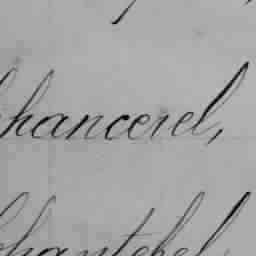 Chancerel,
Chantebel